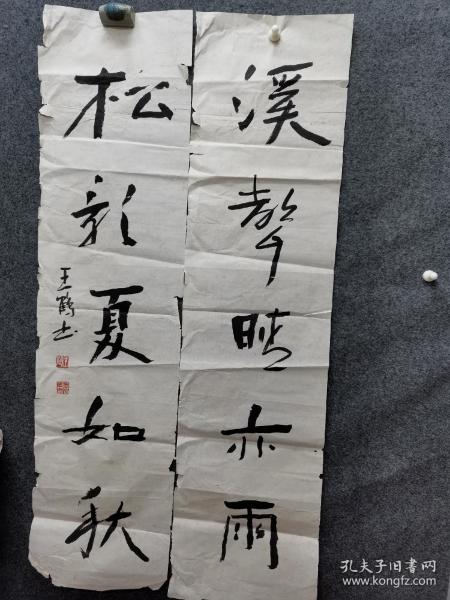 溪聲晴亦雨
松影夏如秋
王鹤书
孔夫子旧书网
www.kongfz.com